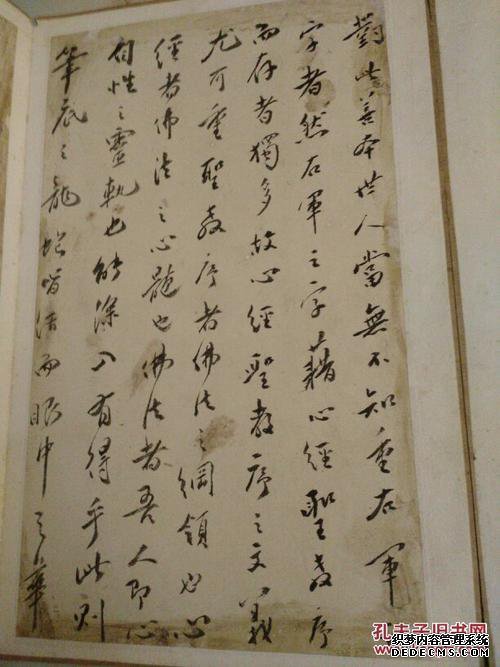 對此善本世人當無不知重右軍
字者然右軍之字藉心經聖教序
而存者獨多故心經聖教序之文義
尤可重聖教序者佛法之綱領也心
經者佛法之心髓也佛法者吾人即心
自性之靈軌也能深入有得乎此則
筆底之龍蛇皆活而眼中之華
孔夫子旧书网
织梦内容管理系统
WWW.DEDECMS.COM